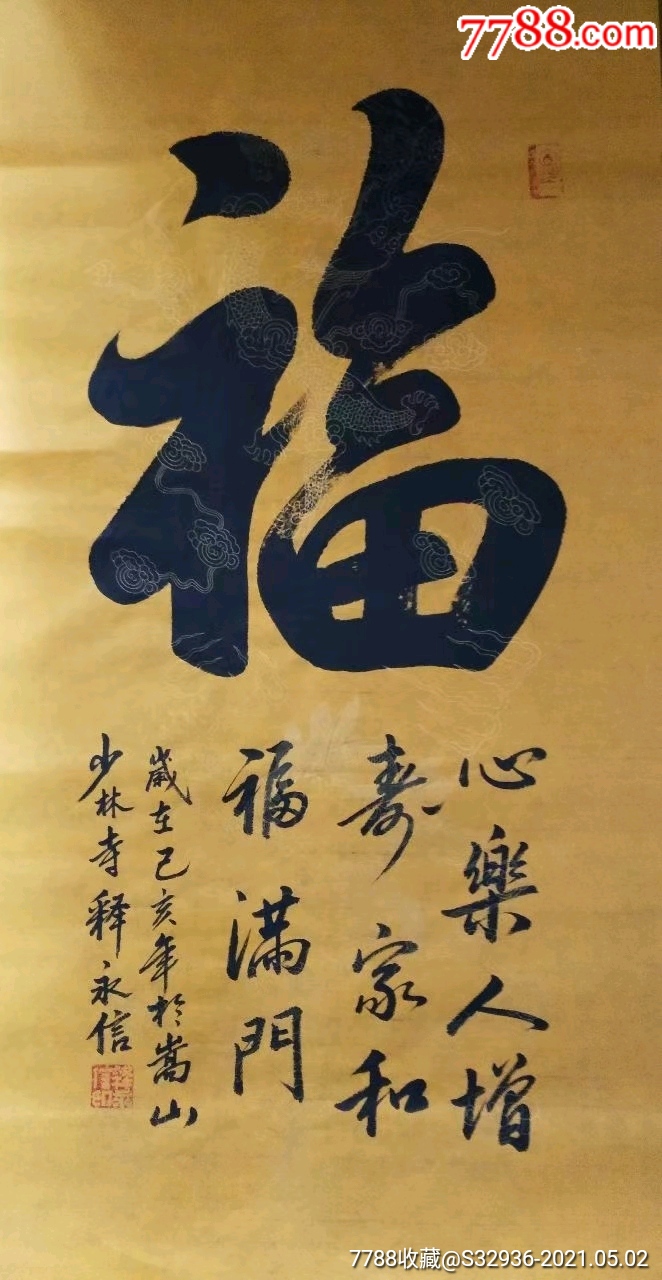 7788.com
福
心樂人增
壽家和
福滿門
歲在己亥年於嵩山
少林寺釋永信
7788收藏@S32936-2021.05.02